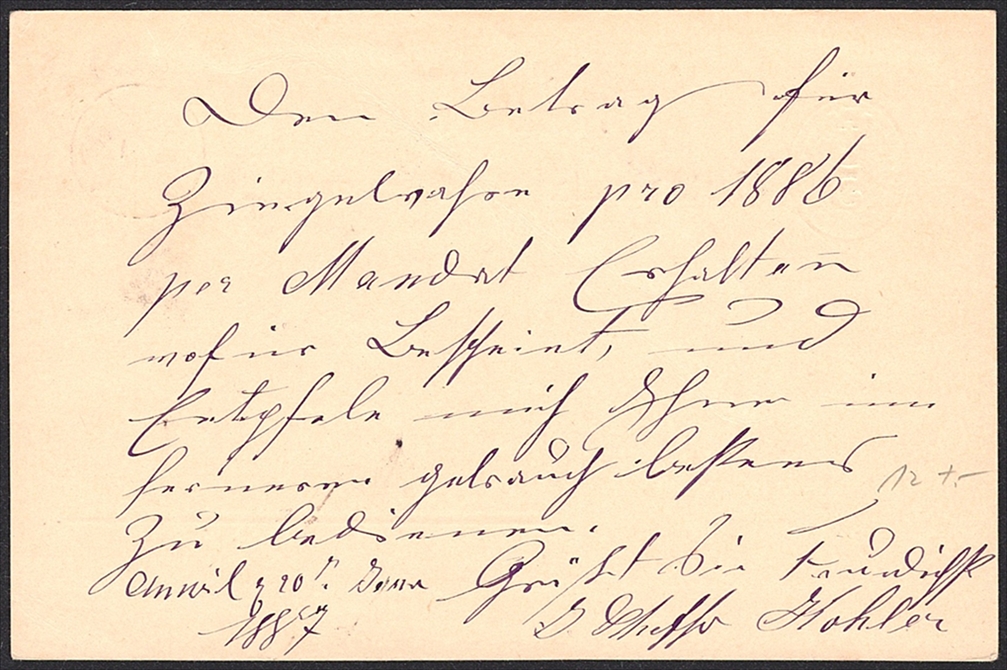 Den Betrag für
Ziegelwahre pro 1886
per Mandat Erhalten
wofür Bescheint, und
Entpfele mich Ihnen im
ferneren gebrauch bestens
zu bedienen.
Anwil 20 Grüßt Sie Freundlichst
1887 Kohler
12